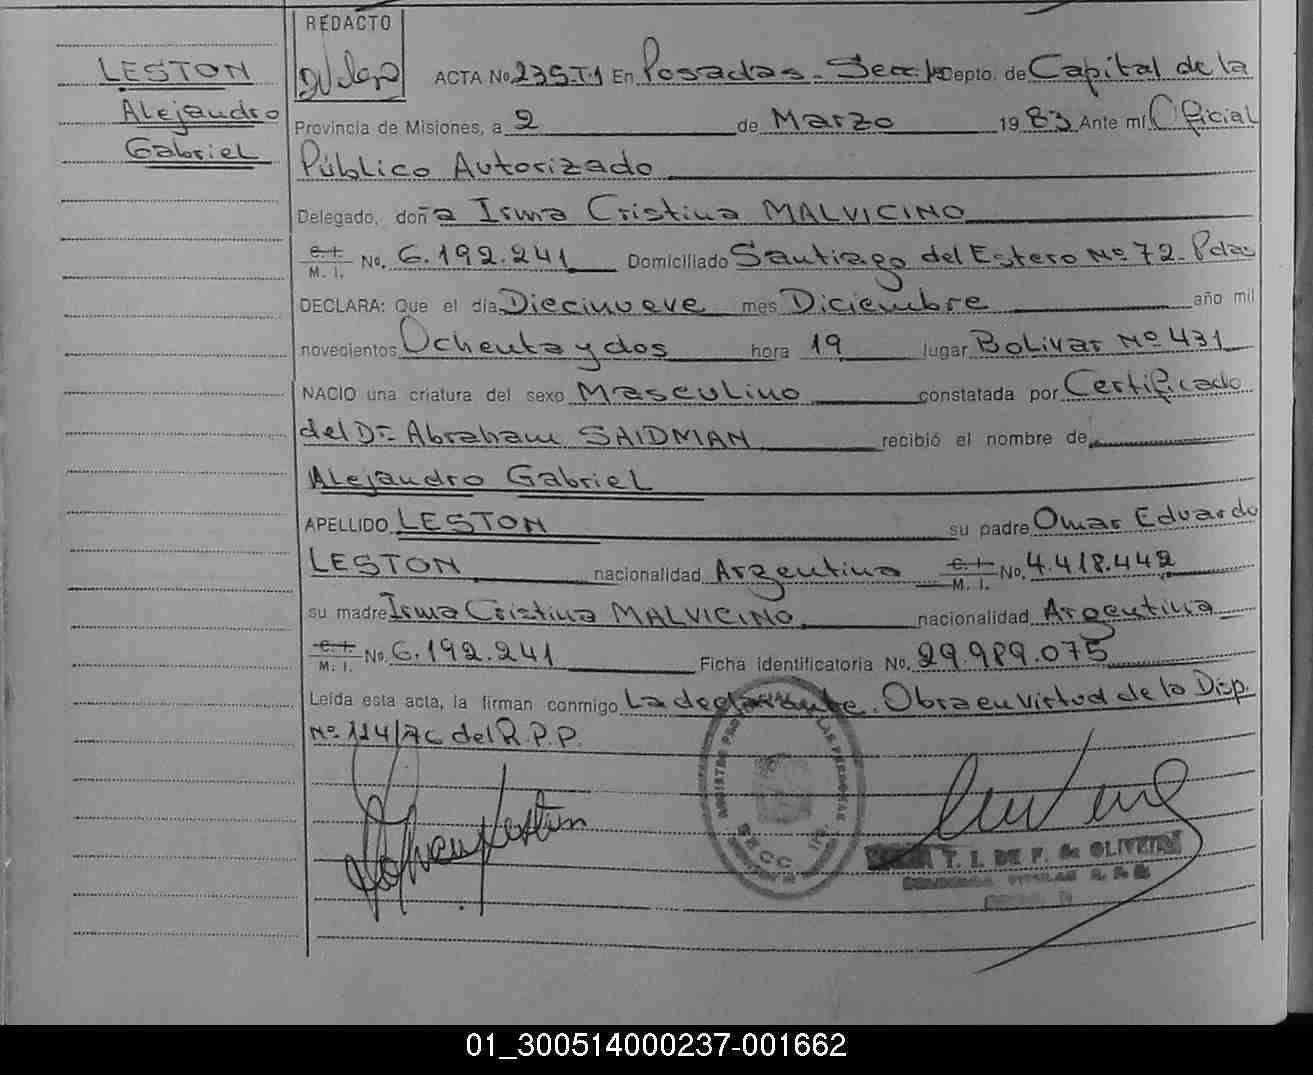 LESTON
Alejandro
Gabriel
REDACTO
ACTA No 235 T.1 En Posadas - Secc. Depto. de Capital de la
Provincia de Misiones, a 2 de Marzo 1983 Ante mí Oficial
Público Autorizado
Delegado, doña Irma Cristina MALVICINO
C.I. M. I. No. 6.192.241 Domiciliado Santiago del Estero Nº 72. Pdas
DECLARA: Que el día Diecinueve mes Diciembre año mil
novecientos Ochenta y dos hora 19 lugar Bolivar Nº 431
NACIO una criatura del sexo Masculino constatada por Certificado
del Dr. Abraham SAIDMAN recibió el nombre de
Alejandro Gabriel
APELLIDO LESTON su padre Omar Eduardo
LESTON nacionalidad Argentina C.I. M. I. No. 4.418.442
su madre Irma Cristina MALVICINO nacionalidad Argentina
C.I. M. I. No. 6.192.241 Ficha identificatoria No. 29.989.075
Leída esta acta, la firman conmigo La declarante. Obra en virtud de la Disp.
Nº 114/76 del R.P.P.
REGISTRO PROVINCIAL DE LAS PERSONAS
SECC.
T. I. DE F. de OLIVEIRA
01_300514000237-001662